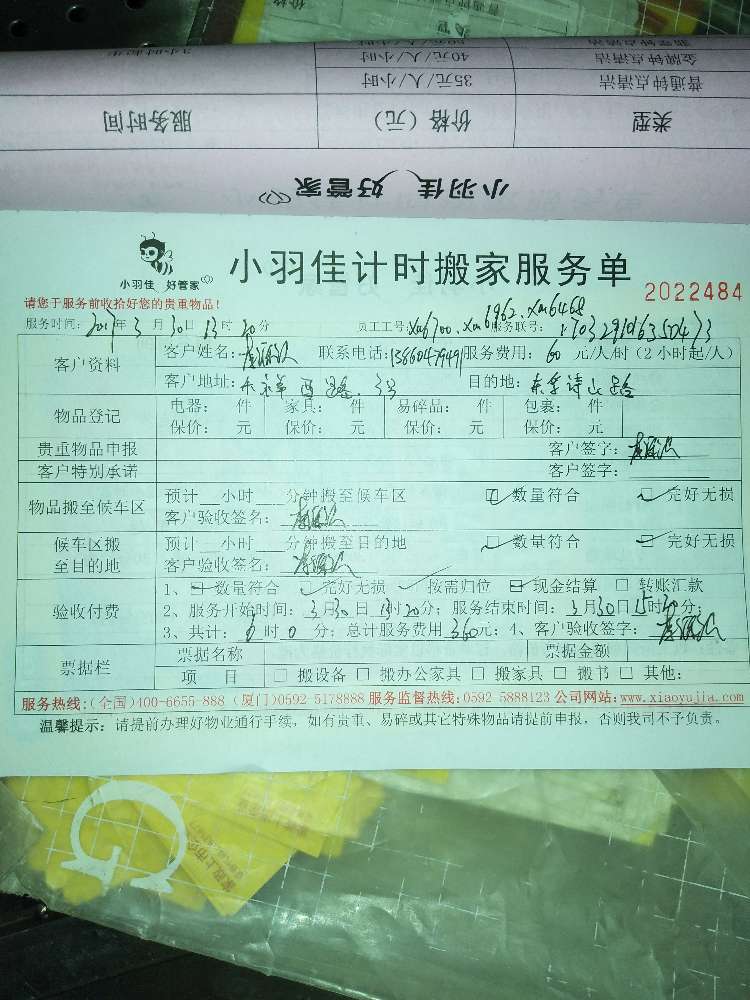 3小时起步
60元/人/小时
金牌钟点清洁
40元/人/小时
普通钟点清洁
35元/人/小时
类型
价格（元）
服务时间
小羽佳 好管家
小羽佳 好管家
小羽佳计时搬家服务单
2022484
请您于服务前收拾好您的贵重物品！
服务时间：2017年3月30日13时20分 员工工号：xm6700、xm6962、xm6468 服务联号：
客户资料 客户姓名： 联系电话：13860479491 服务费用：60元/人/时（2小时起/人）
客户地址： 西路 3号 目的地：东孚诗山路
物品登记 电器： 件 家具： 件 易碎品： 件 包裹： 件
保价： 元 保价： 元 保价： 元 保价： 元
贵重物品申报 客户签字：
客户特别承诺 客户签字：
物品搬至候车区 预计 小时 分钟搬至候车区 数量符合 完好无损
客户验收签名：
候车区搬至目的地 预计 小时 分钟搬至目的地 数量符合 完好无损
客户验收签名：
验收付费 1、 数量符合 完好无损 按需归位 现金结算 □ 转账汇款
2、服务开始时间：3月30日13时20分；服务结束时间：3月30日15时20分；
3、共计： 时0分；总计服务费用360元；4、客户验收签字：
票据栏 票据名称 票据金额
项 目 □ 搬设备 □ 搬办公家具 □ 搬家具 □ 搬书 □ 其他：
服务热线：(全国)400-6655-888 (厦门)0592-5178888 服务监督热线：0592-5888123 公司网站：www.xiaoyujia.com
温馨提示：请提前办理好物业通行手续，如有贵重、易碎或其它特殊物品请提前申报，否则我司不予负责。